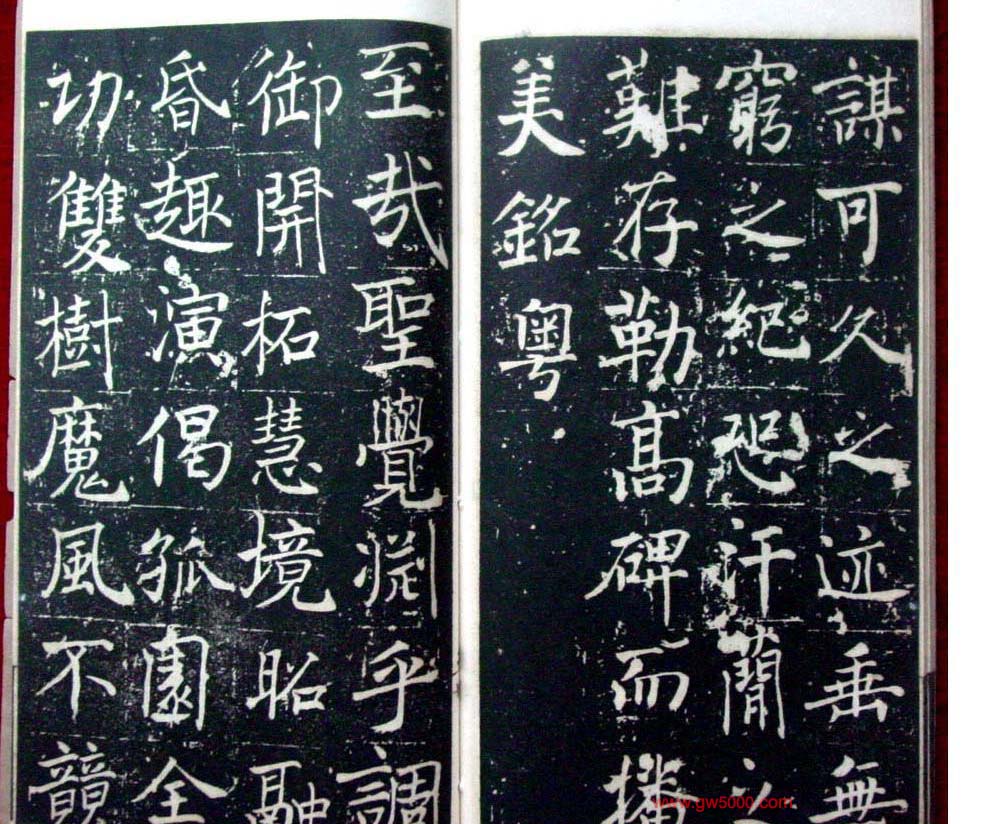 謀可久之迹垂無
窮之紀恐汗蕳之
難存勒髙碑而播
美銘粵
至哉聖覺淵乎調
御開柘慧境昭融
昏趣演偈孤園全
功雙樹魔風不競
www.gw5000.com